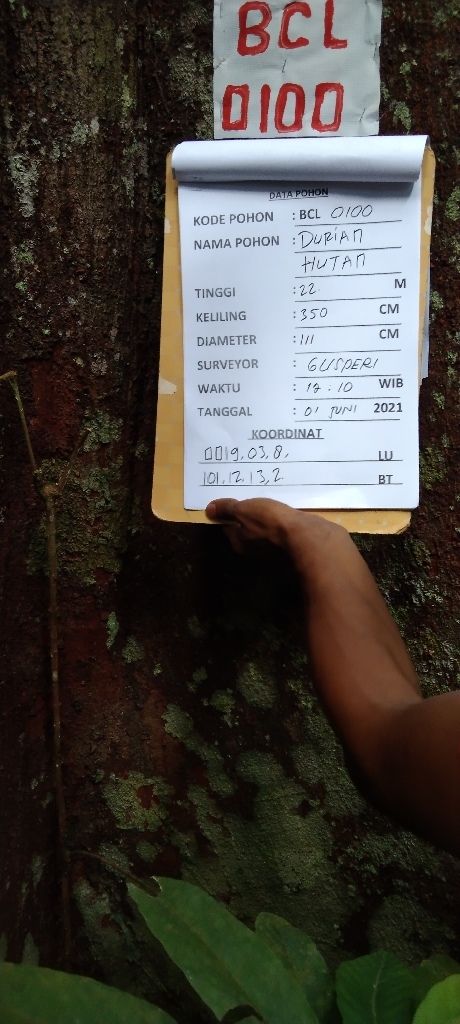 BCL
0100
DATA POHON
KODE POHON : BCL 0100
NAMA POHON : DURIAN
HUTAN
TINGGI : 22 M
KELILING : 350 CM
DIAMETER : 111 CM
SURVEYOR : GUSPERI
WAKTU : 14:10 WIB
TANGGAL : 01 JUNI 2021
KOORDINAT
0019.03,8, LU
101.12.13,2 BT